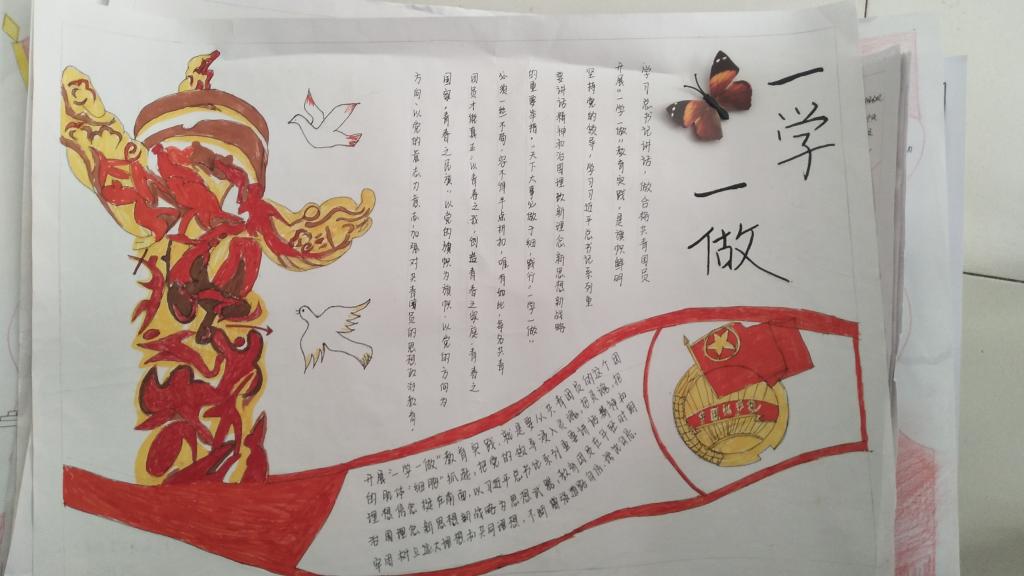 一学
一做
学习总书记讲话，做合格共青团员
开展"一学一做"教育实践，是旗帜鲜明
坚持党的领导，学习习近平总书记系列重
要讲话精神和治国理政新理念新思想新战略
的重要举措。"天下大事必做于细，践行"一学一做"
必须一丝不苟，容不得半点折扣，唯有如此，每名共青
团员才能真正"以青春之我，创造青春之家庭，青春之
国家，青春之民族"，以党的旗帜为旗帜，以党的方向为
方向，以党的意志为意志，加强对共青团员的思想政治教育。
开展"一学一做"教育实践，就是要从共青团员的这个团
的肌体"细胞"抓起，把党的故事
理想信念挺在前面，以习近平总书记系列重要讲话精神和
治国理念新思想新战略为思想武器，教育团员在平时时期
牢固树立远大理想和共同理想，不断增强